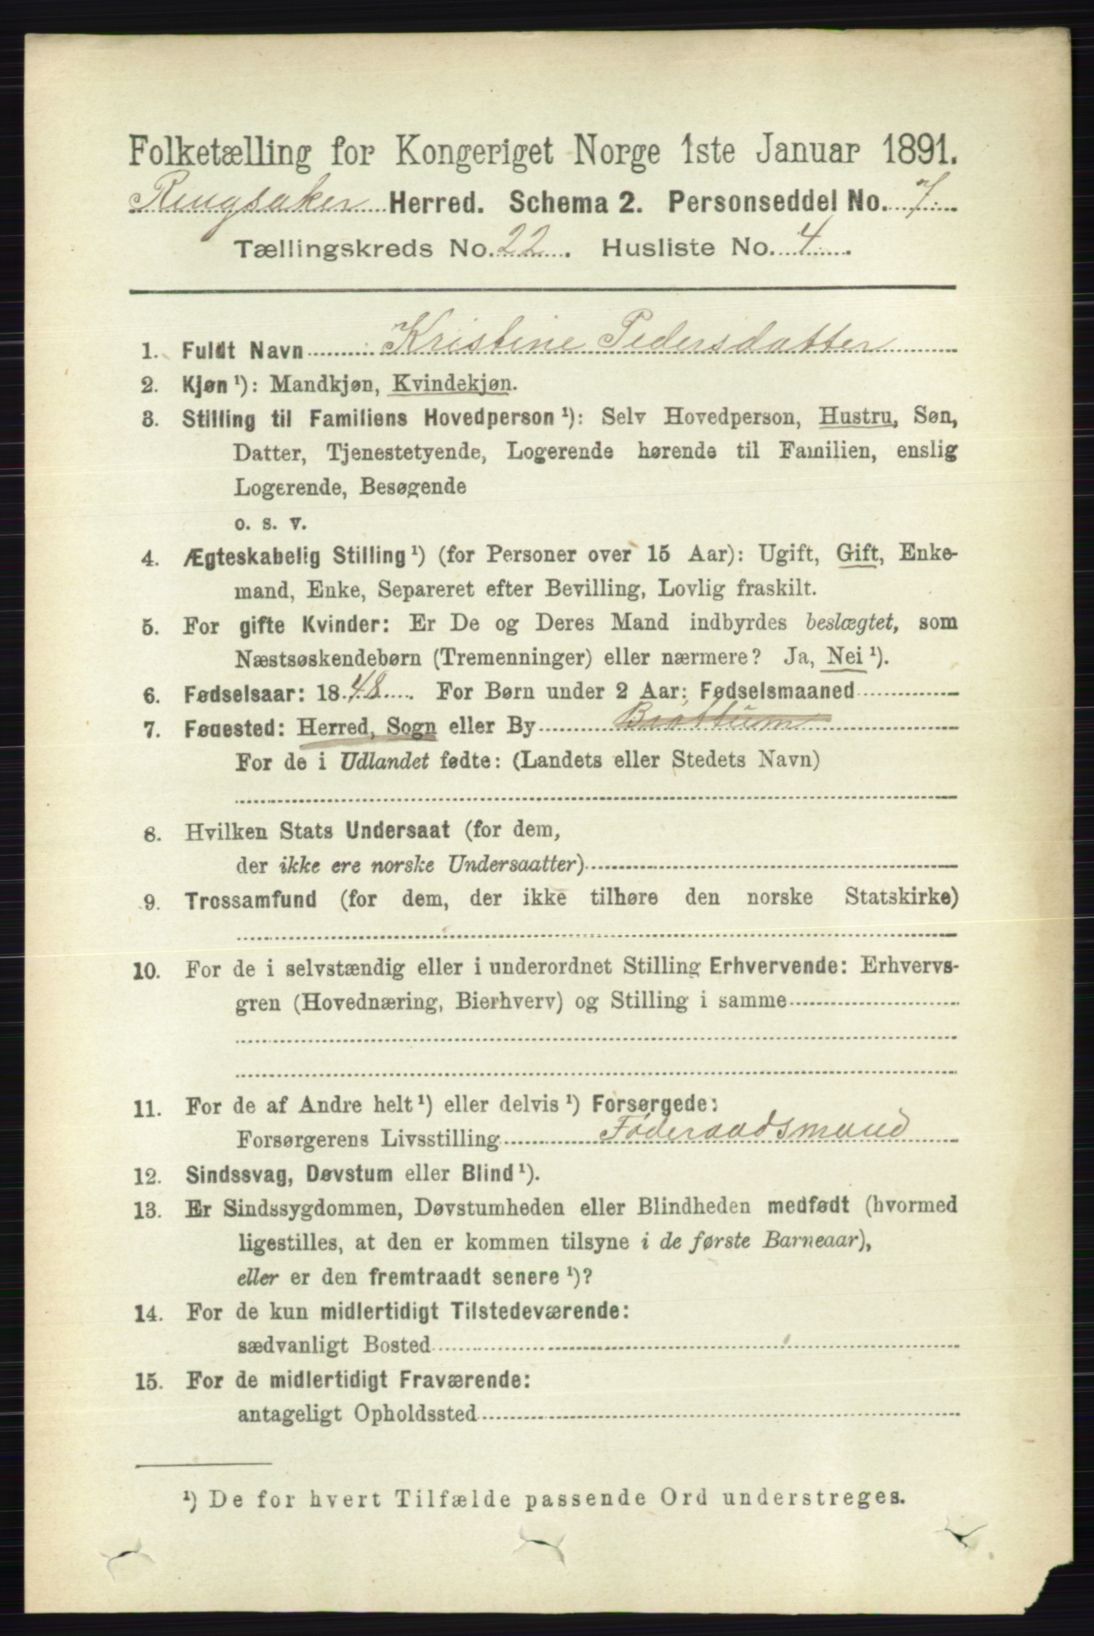 Folketælling for Kongeriget Norge 1ste Januar 1891.
Ringsaker Herred. Schema 2. Personseddel No. 7.
Tællingskreds No. 22. Husliste No. 4.
1. Fuldt Navn Kristine Pedersdatter
2. Kjøn ¹): Mandkjøn, Kvindekjøn.
3. Stilling til Familiens Hovedperson ¹): Selv Hovedperson, Hustru, Søn,
Datter, Tjenestetyende, Logerende hørende til Familien, enslig
Logerende, Besøgende
o. s. v.
4. Ægteskabelig Stilling ¹) (for Personer over 15 Aar): Ugift, Gift, Enke-
mand, Enke, Separeret efter Bevilling, Lovlig fraskilt.
5. For gifte Kvinder: Er De og Deres Mand indbyrdes beslægtet, som
Næstsøskendebørn (Tremenninger) eller nærmere? Ja, Nei ¹).
6. Fødselsaar: 1848. For Børn under 2 Aar: Fødselsmaaned
7. Fødested: Herred, Sogn eller By Brøttum
For de i Udlandet fødte: (Landets eller Stedets Navn)
8. Hvilken Stats Undersaat (for dem,
der ikke ere norske Undersaatter)
9. Trossamfund (for dem, der ikke tilhøre den norske Statskirke)
10. For de i selvstændig eller i underordnet Stilling Erhvervende: Erhvervs-
gren (Hovednæring, Bierhverv) og Stilling i samme
11. For de af Andre helt ¹) eller delvis ¹) Forsørgede:
Forsørgerens Livsstilling Føderaadsmand
12. Sindssvag, Døvstum eller Blind ¹).
13. Er Sindssygdommen, Døvstumheden eller Blindheden medfødt (hvormed
ligestilles, at den er kommen tilsyne i de første Barneaar),
eller er den fremtraadt senere ¹)?
14. For de kun midlertidigt Tilstedeværende:
sædvanligt Bosted
15. For de midlertidigt Fraværende:
antageligt Opholdssted
¹) De for hvert Tilfælde passende Ord understreges.